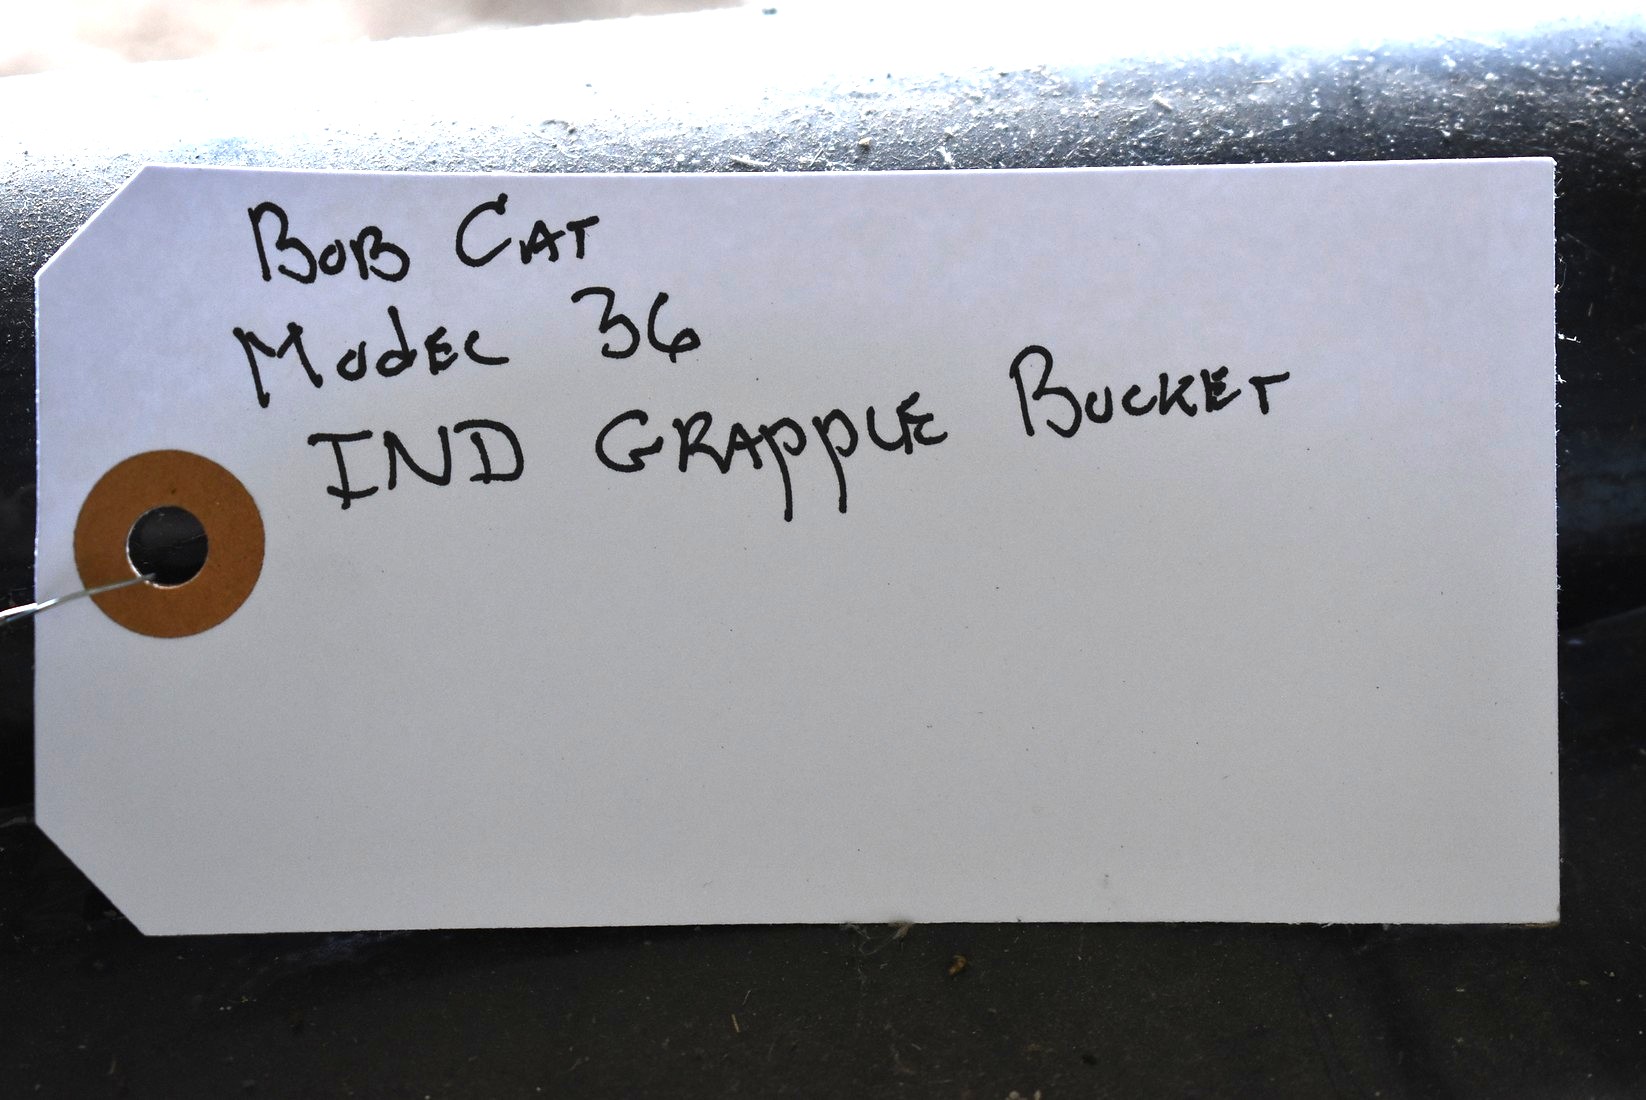 Bob Cat
Model 36
IND GRAPPLE BUCKET